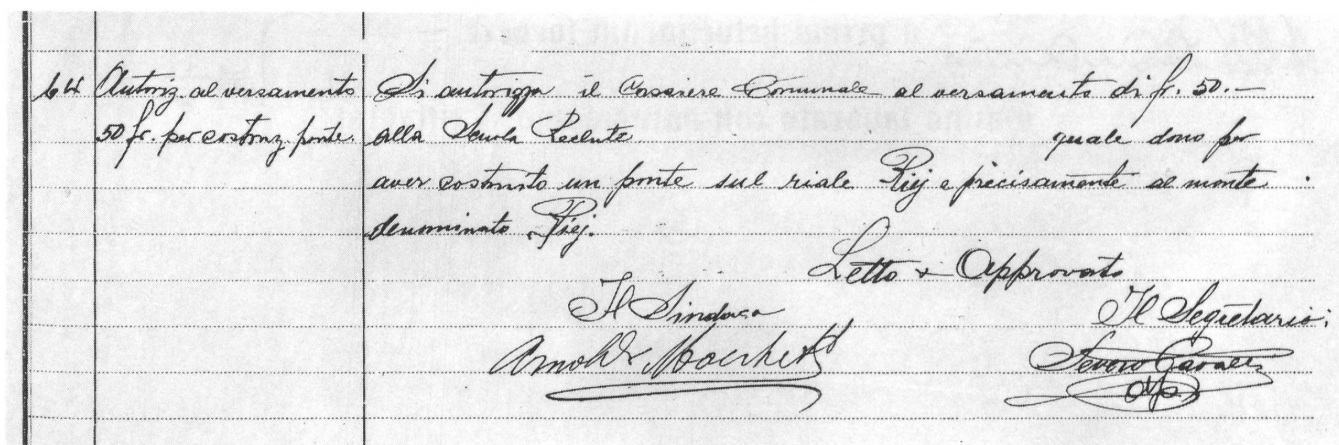 64
Autoriz. al versamento
50 fr. per costruz. ponte.
Si autorizza il Cassiere Comunale al versamento di fr. 50.—
alla Scuola Reclute quale dono per
aver costruito un ponte sul riale Piej e precisamente al monte
denominato Piej.
Letto & Approvato
Il Sindaco
Il Segretario:
Arnold
Severo